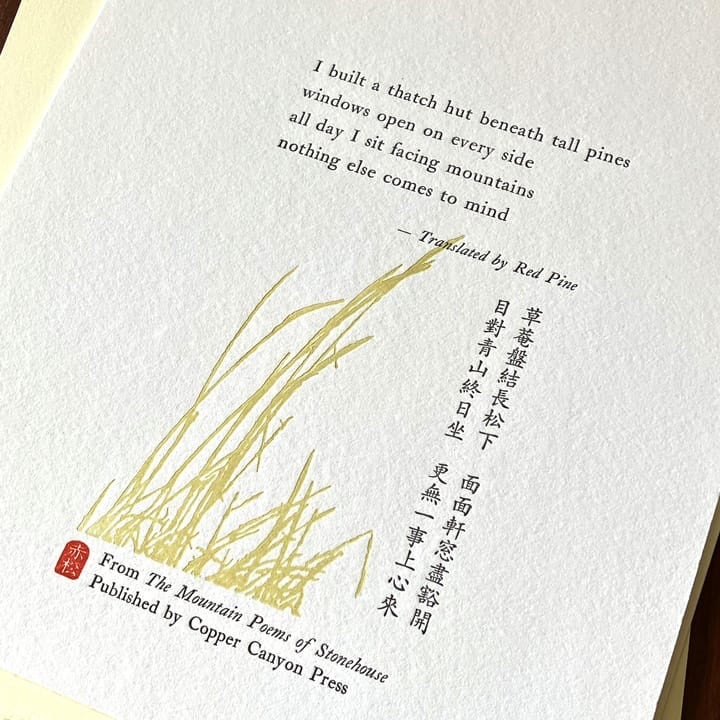 I built a thatch hut beneath tall pines
windows open on every side
all day I sit facing mountains
nothing else comes to mind
— Translated by Red Pine
草菴盤結長松下 面面軒窓盡豁開
目對青山終日坐 更無一事上心來
赤松
From The Mountain Poems of Stonehouse
Published by Copper Canyon Press